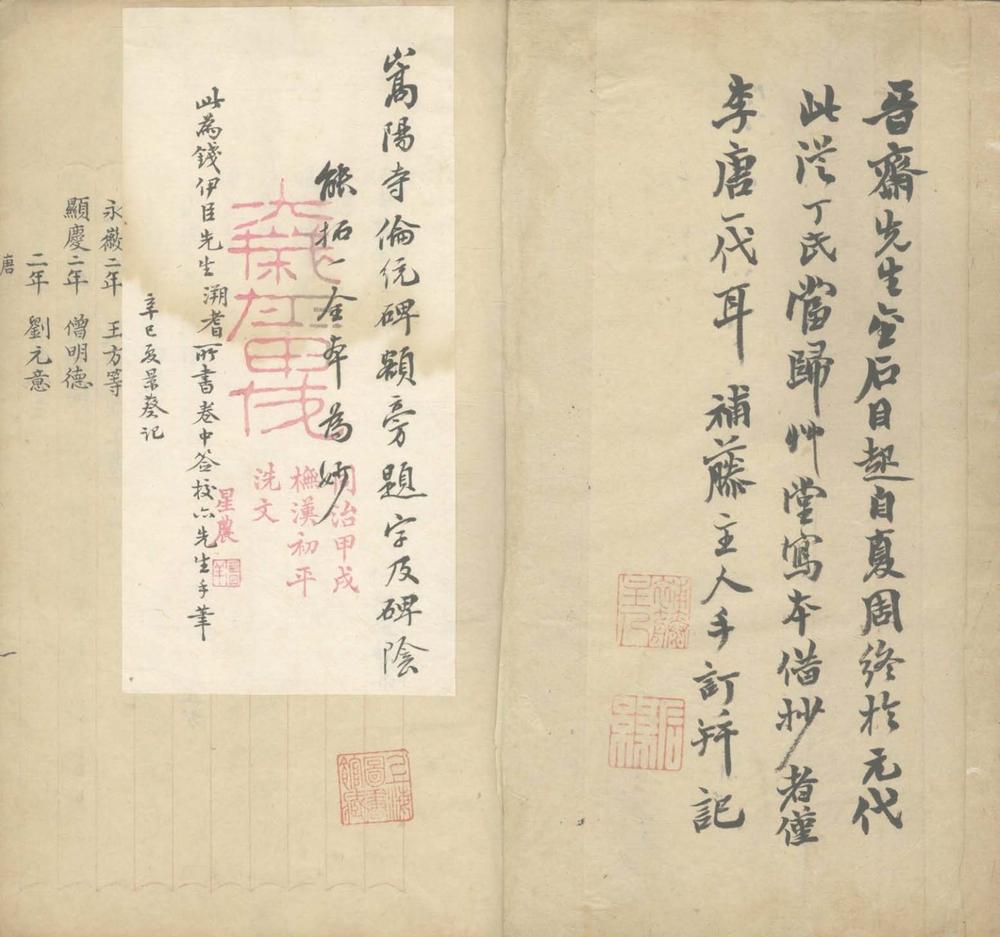 晉齋先生金石目起自夏周終於元代
此從丁氏當歸艸堂寫本借抄者僅
李唐一代耳 補藤主人手訂并記
嵩陽寺倫統碑額旁題字及碑陰
能拓一全本為妙
同治甲戌
橅漢初平
洗文
星農
此為錢伊臣先生溯耆所書卷中答校六先生手筆
辛巳夏景葵記
永徽二年 王方等
顯慶二年 僧明德
二年 劉元意
唐
上海圖書館藏